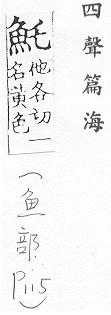 四聲篇海
魹他各切一名黃色
(鱼部P115)